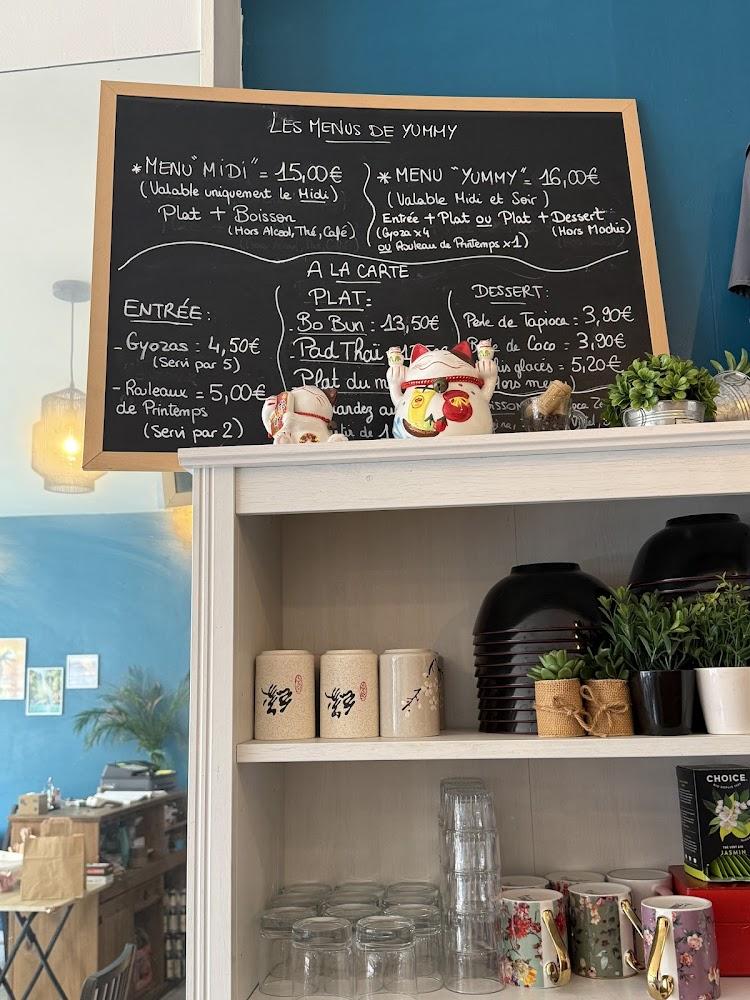 LES MENUS DE YUMMY
* MENU "MIDI" = 15,00€
(Valable uniquement le Midi)
Plat + Boisson
(Hors Alcool, Thé, Café)
* MENU "YUMMY" = 16,00€
(Valable Midi et Soir)
Entrée + Plat ou Plat + Dessert
(Gyoza x4
ou Rouleau de Printemps x1)
(Hors Mochis)
A LA CARTE
ENTRÉE :
- Gyozas : 4,50€
(Servi par 5)
- Rouleaux = 5,00€
de Printemps
(Servi par 2)
PLAT :
- Bo Bun : 13,50€
- Pad Thaï
- Plat du
DESSERT :
Perle de Tapioca : 3,90€
de Coco : 3,90€
glacés : 5,20€
CHOICE
THÉ VERT BIO
JASMIN